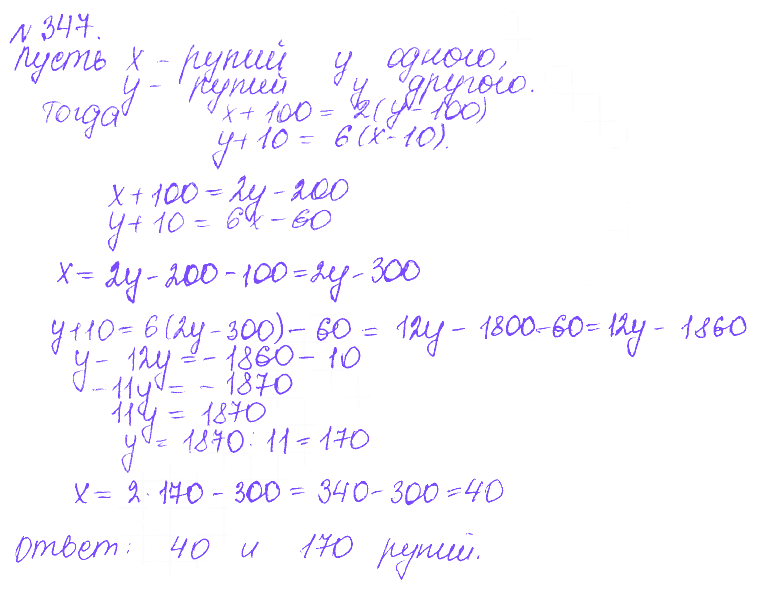 N 347.
Пусть x - рупий у одного,
y - рупий у другого.
Тогда x + 100 = 2(y - 100)
y + 10 = 6(x - 10).
x + 100 = 2y - 200
y + 10 = 6x - 60
x = 2y - 200 - 100 = 2y - 300
y + 10 = 6(2y - 300) - 60 = 12y - 1800 - 60 = 12y - 1860
y - 12y = - 1860 - 10
- 11y = - 1870
11y = 1870
y = 1870 : 11 = 170
x = 2 · 170 - 300 = 340 - 300 = 40
Ответ: 40 и 170 рупий.